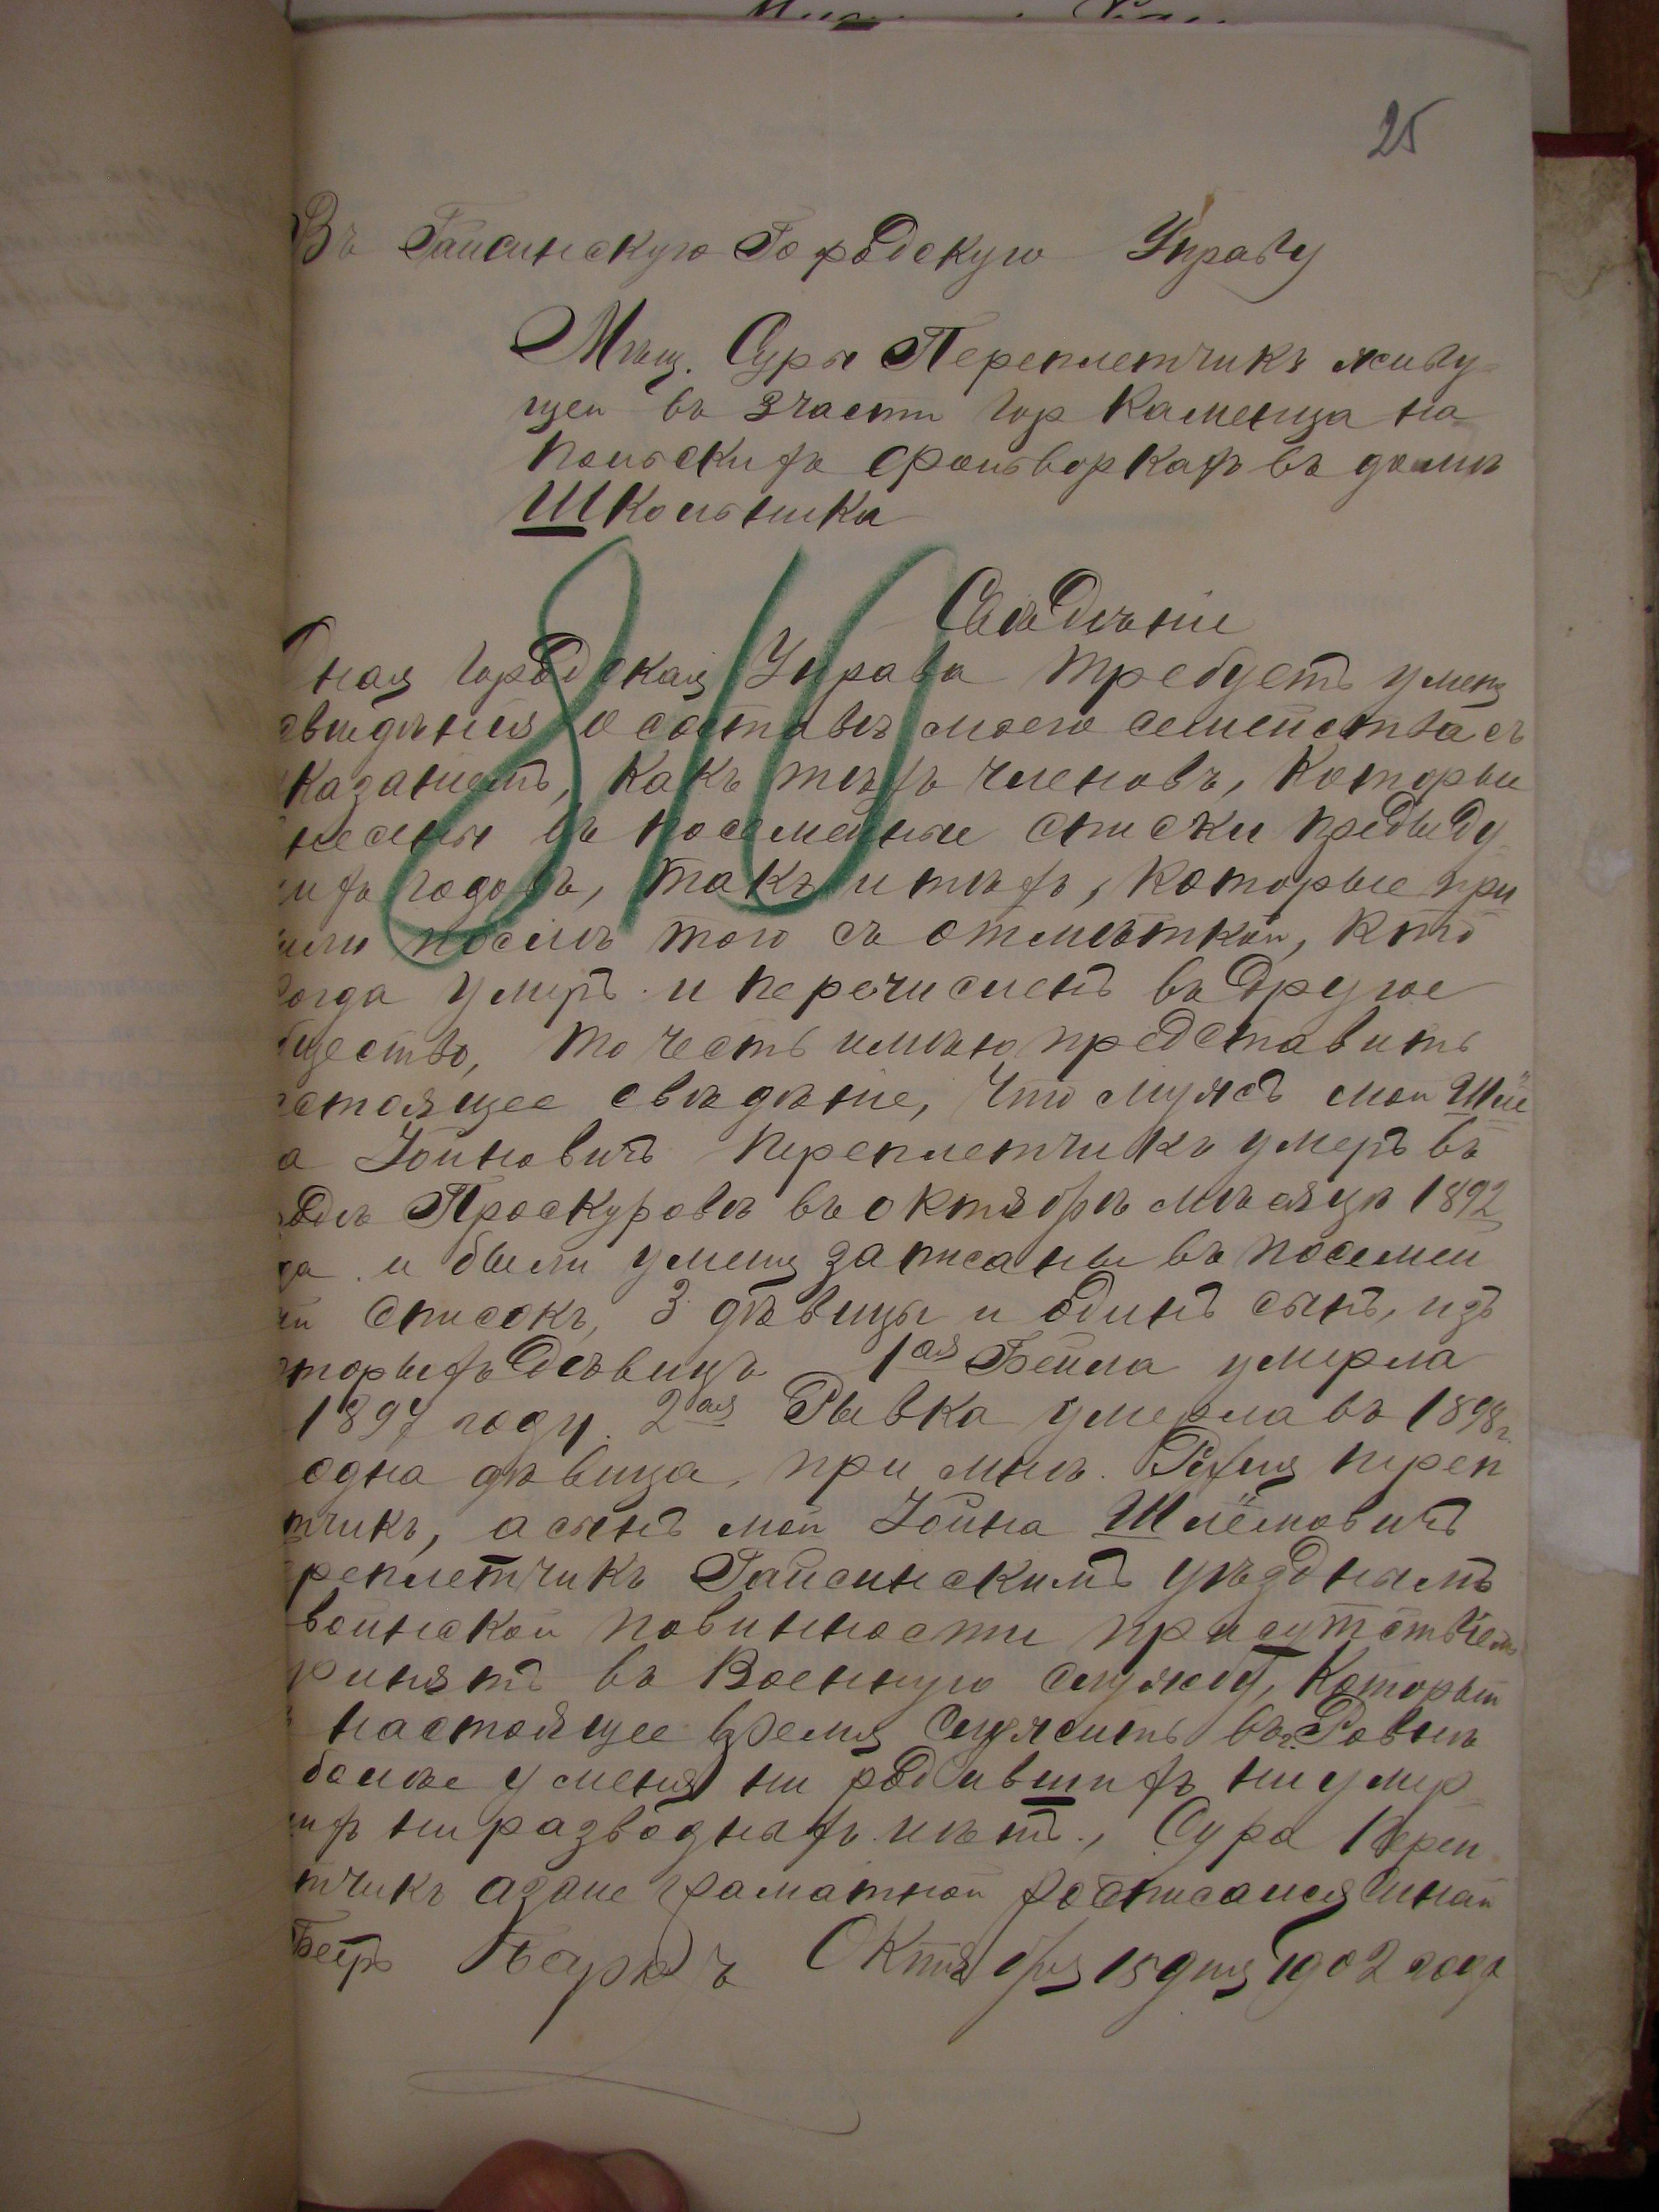 25
Въ Гайсинскую Городскую Управу
Мѣщ. Суры Переплетчикъ живу-
щей въ 3 части гор Каменца на
Польскихъ Фольворкахъ въ домѣ
Школьника
Свѣдѣніе
ная Городская Управа требуетъ у меня
свидѣнія о составѣ моего семейства съ
казаніемъ, какъ тѣхъ членовъ, которые
несены въ посемейные списки предыду-
ихъ годовъ, такъ и тѣхъ, которые при
или послѣ того съ отмѣткой, кто
когда умеръ и перечисленъ въ другое
бщество, то честь имѣю представить
стоящее свѣдѣніе, что мужъ мой Шлё
а Іойновичъ Переплетчикъ умеръ въ
одѣ Проскуровѣ въ октябрѣ мѣсяцѣ 1892
да и были у меня записаны въ посемей
ій списокъ, 3 дѣвицы и одинъ сынъ, изъ
торыхъ дѣвицъ 1ая Бейла умерла
1897 году. 2ая Рывка умерла въ 1898 г.
одна дѣвица, при мнѣ. Рухля переп
тчикъ, а сынъ мой Іойна Шлёмовичъ
реплетчикъ Гайсинскимъ уѣзднымъ
воинской повинности присутствіемъ
ринятъ въ Военную службу, который
настоящее время служитъ въ г. Ровнѣ
болѣе у меня ни родившихъ ни умер-
ихъ ни разводныхъ нѣтъ., Сура Переп
тчикъ а за не граматной росписался
Октября 15 дня 1902 года